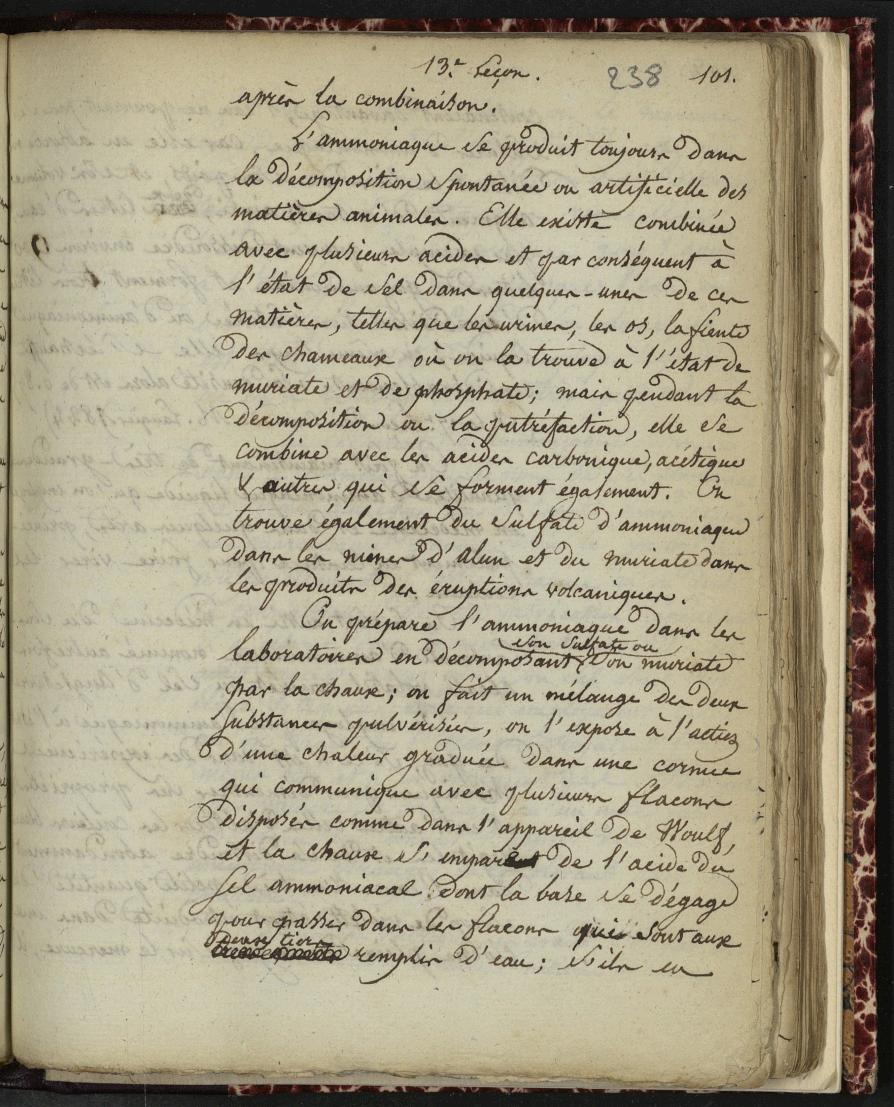 13.e Leçon. 238 101.
après la combinaison.
L'ammoniaque se produit toujours dans
la décomposition spontanée ou artificielle des
matières animales. Elle existe combinée
avec plusieurs acides et par conséquent à
l'état de sel dans quelques-unes de ces
matières, telles que les urines, les os, la fiente
des chameaux où on la trouve à l'état de
muriate et de phosphate; mais pendant la
décomposition ou la putréfaction, elle se
combine avec les acides carbonique, acétique
& autres qui se forment également. On
trouve également du sulfate d'ammoniaque
dans les mines d'alun et du muriate dans
les produits des éruptions volcaniques.
On prépare l'ammoniaque dans les
son sulfate ou
laboratoires en décomposant son muriate
par la chaux; on fait un mélange des deux
substances pulvérisées, on l'expose à l'action
d'une chaleur graduée dans une cornue
qui communique avec plusieurs flacons
disposés comme dans l'appareil de Woulf,
et la chaux s'emparant de l'acide du
sel ammoniacal dont la base se dégage
pour passer dans les flacons qui sont aux
deux tiers
remplis d'eau; s'ils en